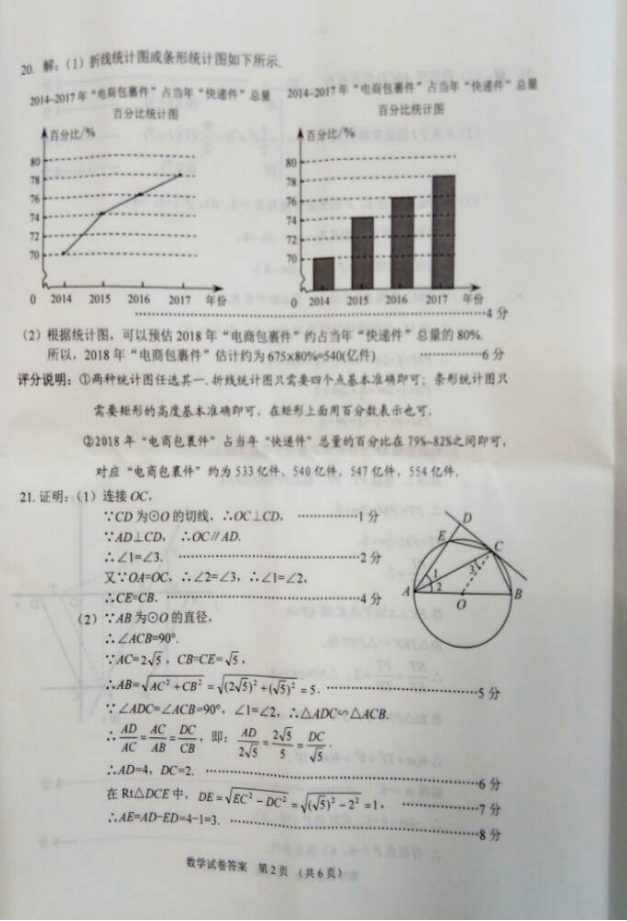 20. 解:(1)折线统计图或条形统计图如下所示.
2014~2017年“电商包裹件”占当年“快递件”总量
百分比统计图
百分比/%
80
78
76
74
72
70
0 2014 2015 2016 2017 年份
2014~2017年“电商包裹件”占当年“快递件”总量
百分比统计图
百分比/%
80
78
76
74
72
70
0 2014 2015 2016 2017 年份
4分
(2)根据统计图,可以预估2018年“电商包裹件”约占当年“快递件”总量的80%.
所以,2018年“电商包裹件”估计约为675×80%=540(亿件) ……………6分
评分说明:①两种统计图任选其一.折线统计图只需要四个点基本准确即可;条形统计图只
需要矩形的高度基本准确即可,在矩形上面用百分数表示也可.
②2018年“电商包裹件”占当年“快递件”总量的百分比在79%~82%之间即可,
对应“电商包裹件”约为533亿件,540亿件,547亿件,554亿件.
21. 证明:(1)连接OC,
∵CD为⊙O的切线,∴OC⊥CD, ……………1分
∵AD⊥CD, ∴OC∥AD.
∴∠1=∠3. ……………2分
又∵OA=OC,∴∠2=∠3,∴∠1=∠2,
∴CE=CB. ……………4分
(2)∵AB为⊙O的直径,
∴∠ACB=90°.
∵AC=2√5,CB=CE=√5,
∴AB=√(AC²+CB²)=√((2√5)²+(√5)²)=5. ……………5分
∵∠ADC=∠ACB=90°,∠1=∠2,∴△ADC∽△ACB.
∴AD/AC=AC/AB=DC/CB,即:AD/2√5=2√5/5=DC/√5.
∴AD=4,DC=2. ……………6分
在Rt△DCE中,DE=√(EC²-DC²)=√((√5)²-2²)=1, ……………7分
∴AE=AD-ED=4-1=3. ……………8分
D
E
C
1
3
2
A
O
B
数学试卷答案 第2页 (共6页)